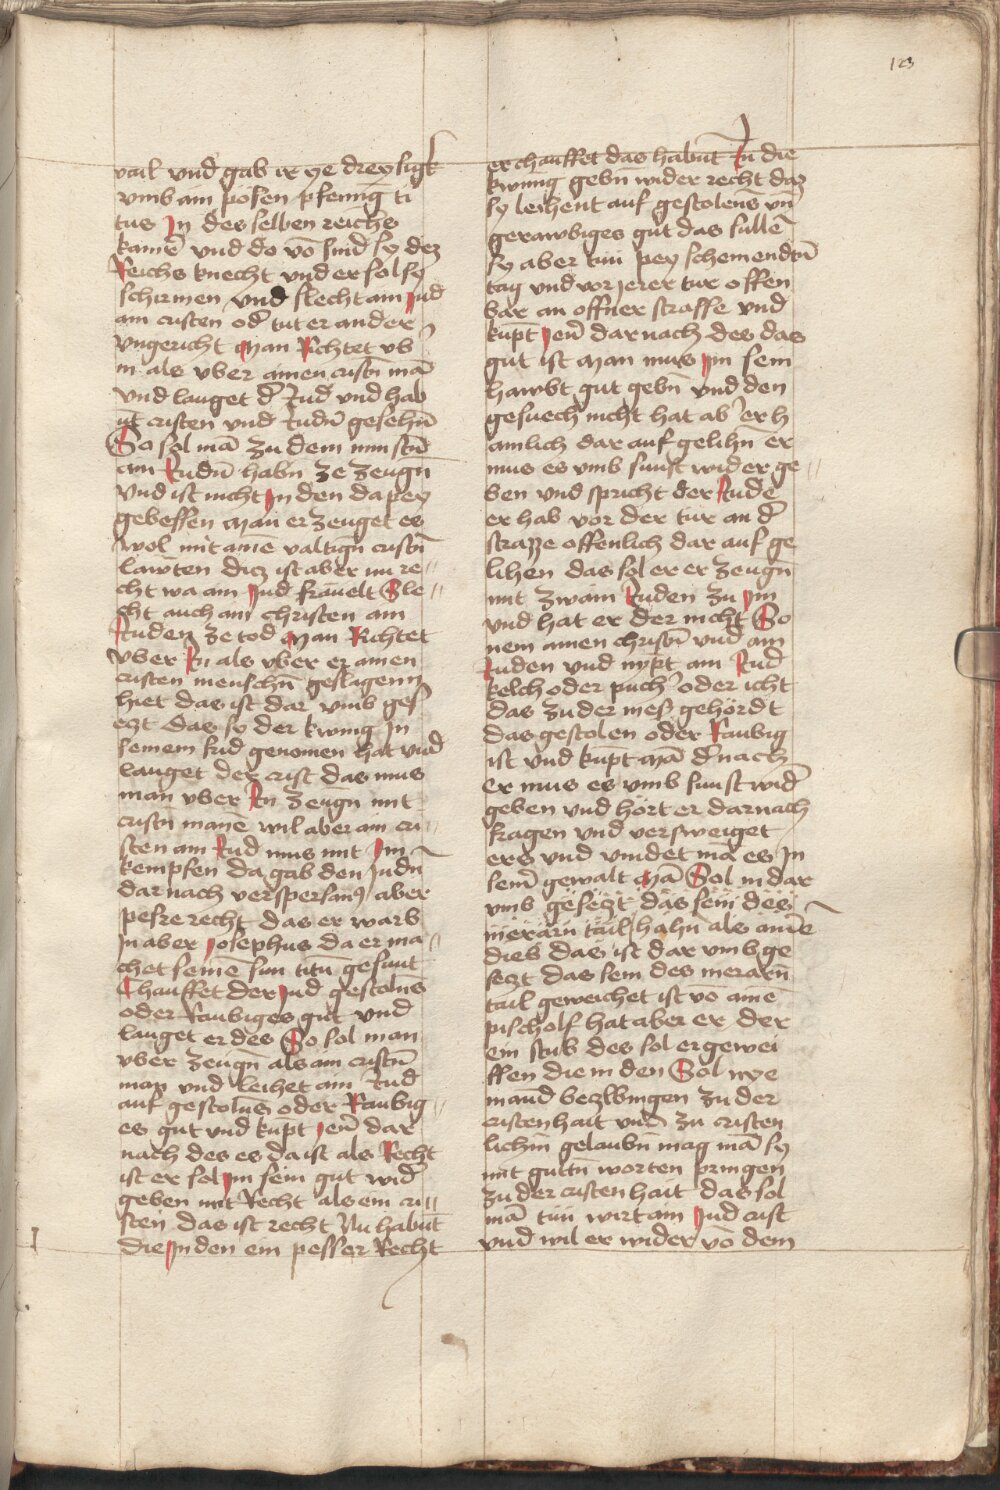 123
vail vnd gab ir ye dreysigk
vmb ain posen pfening ti
tus Jn des selben reichs
kamer̄ vnd do vō sind sy dez
Reichs knecht vnd er sol sy
schirmen vnd slecht ain Jud
ain cristen od̄ tut er ander
vngericht Man Richtet vb
in als vber ainen cristn̄ mā
vnd lauget d̄ Jud vnd hab
nt cristen vnd Judn̄ gesehn̄
So sol mā zu dem minstn̄
ain Judn̄ habn̄ ze zeugn̄
vnd ist nicht Jn den da pey
gebessen Man er zeuget es
wol mit ainē valtign̄ cristn̄
lawten diz ist aber nu re
cht wa ain Jud frāuelt Sle
cht auch ain christen ain
Juden ze tod Man Richtet
vber Jn als vber er ainen
cristen menschn̄ geslagenn
hiet das ist dar vmb ges
ezt das sy der kwnig Jn
seinem frid genomen hat vnd
lauget der crist das mus
man vber Jn zeugn̄ mit
cristn̄ manē wil aber ain cri
sten ain Jud mus mit Jm
kempfen da gab den Judn̄
dar nach verspersanꝰ aber
pesze recht das er warb
Jn aber Josephus da er ma
chet seinē sun titū gesunt
Chauffet der Jud gestolns
oder Raubiges gut vnd
lauget er des So sol man
vber zeugn̄ als ain cristn̄
man vnd leihet ain Jud
auf gestolns oder Raubig
es gut vnd kupt Jen̄ dar
nach des es da ist als Recht
ist er sol Jm sein gut wid̄
geben mit Recht als ein cri
sten das ist recht Nu habnt
die Juden ein pesser Recht
er chauffet das habnt Jn die
kwnig gebn̄ wider recht daz
sy leihent auf gestolens vn̄
gerawbiges gut das sullē
sy aber tun pey schemendn̄
tag vnd vor jerer tur offen
bar an offner strasse vnd
kupt Jen̄ dar nach des das
gut ist Man mus Jm sein
hawbt gut gebn̄ vnd den
gesuech nicht hat ab er h
amlich dar auf gelihn̄ er
mus es vmb sunst wider ge
ben vnd spricht der Jude
er hab vor der tur an d̄
strazze offenlich dar auf ge
lihen das sol er er zeugn̄
mit zwain Juden zu Jm
vnd hat er der nicht So
nem ainen christn̄ vnd ain
Juden vnd nypt ain Jud
kelch oder puch oder icht
das zu der mess gehördt
das gestolen oder Raubig
ist vnd kupt mā d̄nach
er mus es vmb sunst wid̄
geben vnd hört er darnach
fragen vnd versweiget
ers vnd vindet mā es Jn
sein̄ gewalt Mā Sol in dar
vmb gesezt das sein des
merärn tail hahn̄ als ainē
dieb das ist dar vmb ge
sezt das sein des merarn̄
tail geweichet ist vō ainē
pischolf hat aber er der
ein stub des sol er gewei
ffen die in den Sol nye
mand bezwingen zu der
cristenhait vnd zu cristen
lichm̄ gelaubn̄ mag mā sy
mit gutn̄ worten pringen
zu der cristenhait das sol
mā tun wirt ain Jud crist
vnd wil er wider vō dem